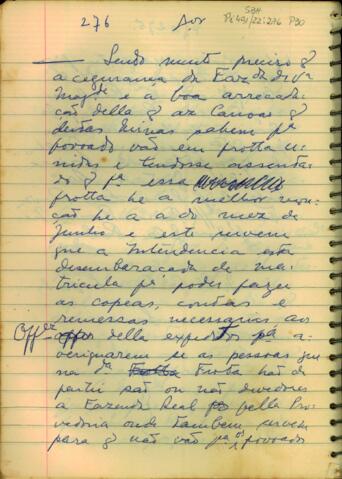 276
Aos
SBH
Pi 491/22: 276 P30
— Sendo muito preciso q
a cegurança da Fazda de Va
Magde e a boa arrecada
ção della q as Canoas q
destas Minas sahem pa
povoado vão em frotta u-
nidas e tendosse assenta-
do q pa essa
frotta he a melhor mon-
ção he a do mez de
Junho e este convem
que a Intendencia esta
desembaraçada de ma-
tricula pa poder fazer
as copeas, contas e
remessas necessarias aos
Offes della expedir pa a-
veriguarem se as pessoas que
na da Frotta hão de
partir são ou não devedores
a Fazenda Real pella Pro-
vedoria onde tambem
para q não vão pa os povoado